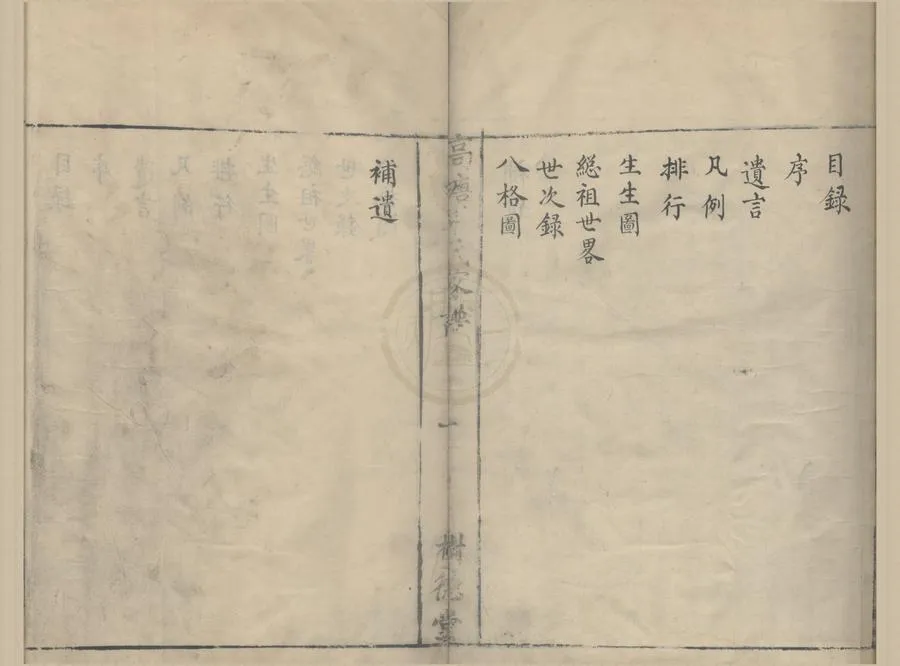 目録
序
遺言
凡例
排行
生生圖
総祖世畧
世次録
八格圖
高塘
氏家譜
一
樹德堂
補遺